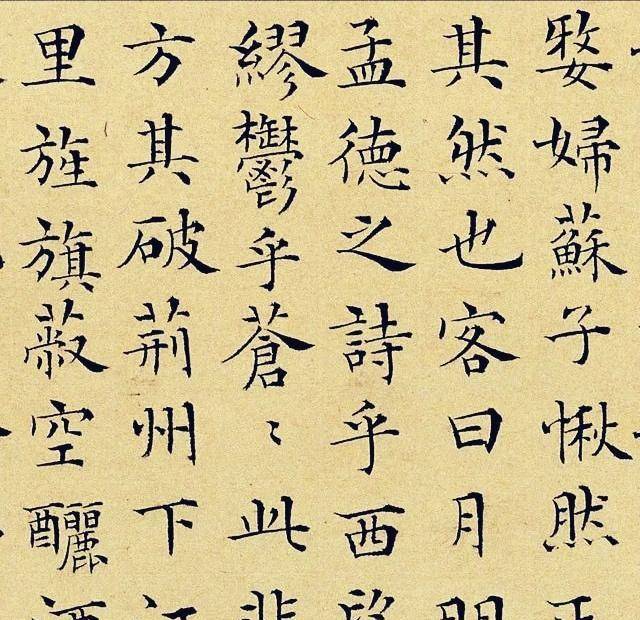 嫠婦蘇子愀然正
其然也客曰月明
孟德之詩乎西望
繆鬱乎蒼〻此非
方其破荊州下江
里旌旗蔽空釃酒